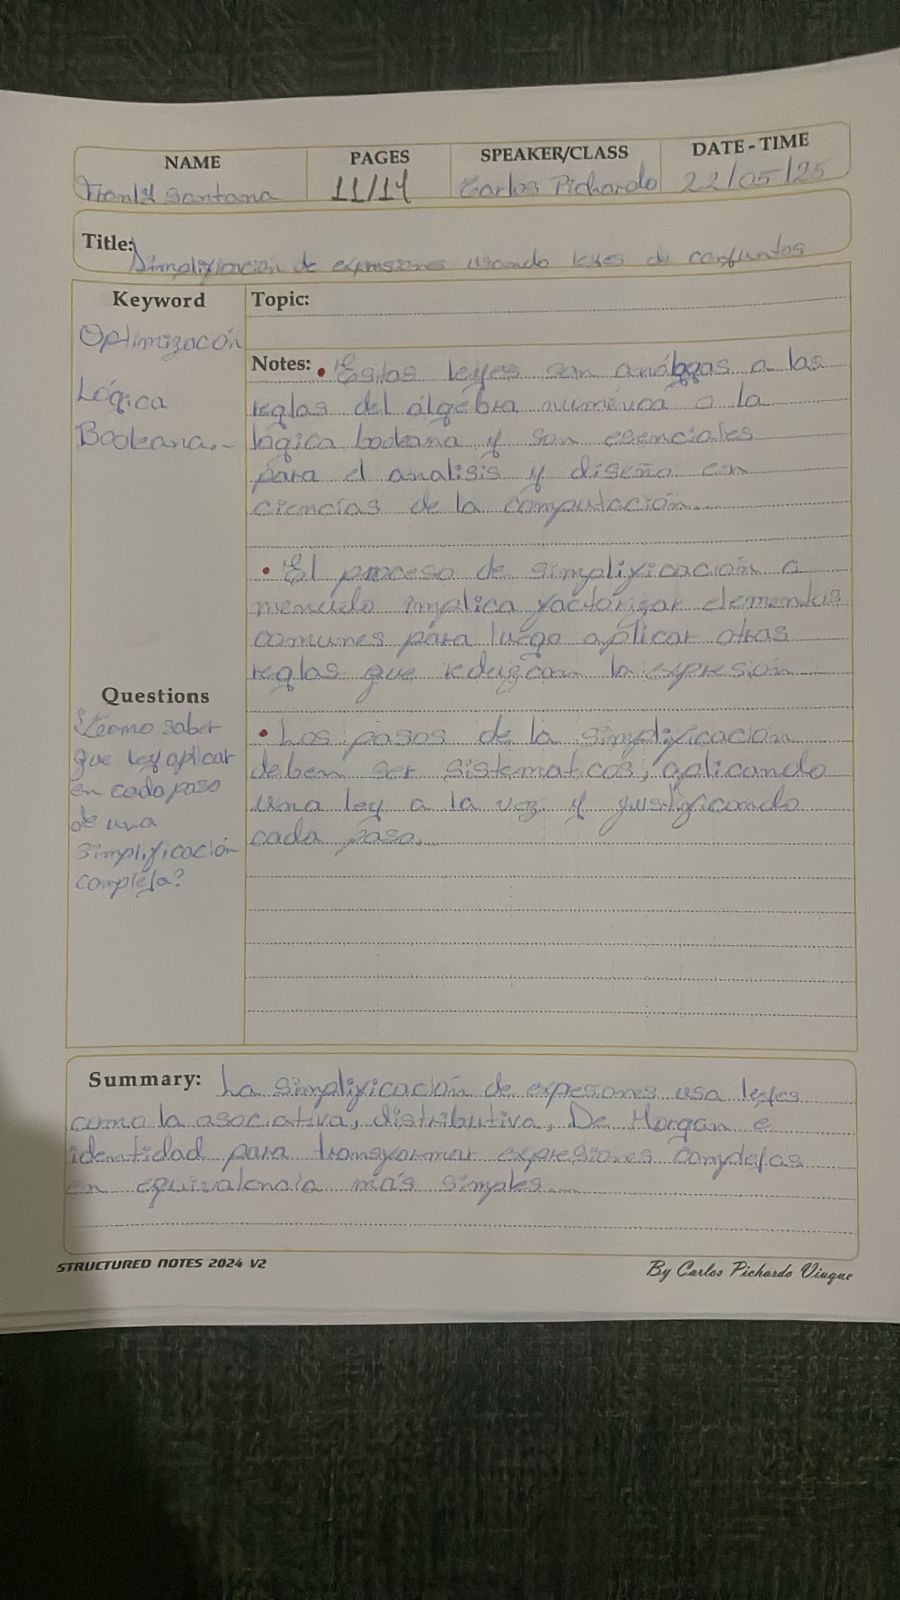 NAME PAGES SPEAKER/CLASS DATE - TIME
Santana 11/14 Carlos Pichardo 22/05/25
Title: Simplificación de expresiones usando leyes de conjuntos
Keyword
Optimización
Lógica
Booleana.-
Topic:
Notes: • Estas leyes son análogas a las
reglas del álgebra numérica o la
lógica booleana y son esenciales
para el analisis y diseño en
ciencias de la computación.
• El proceso de simplificación a
menudo implica factorizar elementos
comunes para luego aplicar otras
reglas que reduzcan la expresión
• Los pasos de la simplificación
deben ser sistematicos, aplicando
una ley a la vez y justificando
cada paso.
Questions
¿Cómo saber
que ley aplicar
en cada paso
de una
simplificación
compleja?
Summary: La simplificación de expresiones usa leyes
como la asociativa, distributiva, De Morgan e
identidad para transformar expresiones complejas
en equivalencia más simples
STRUCTURED NOTES 2024 V2
By Carlos Pichardo Viuque